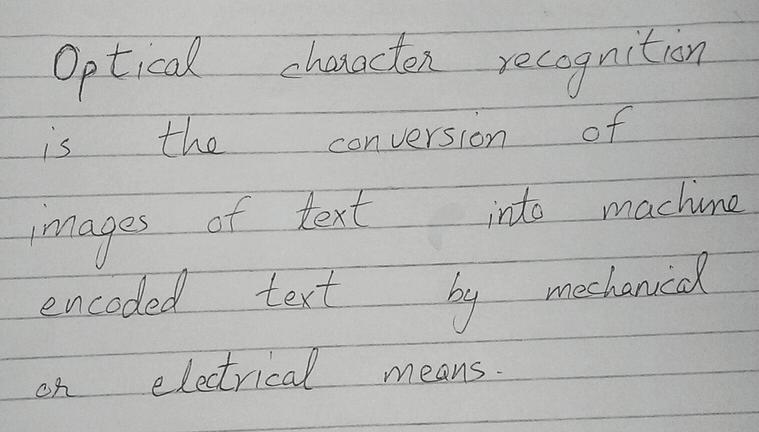 Optical character recognition
is the conversion of
images of text into machine
encoded text by mechanical
or electrical means.